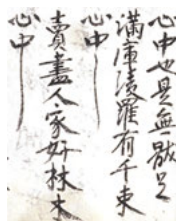 心中也是無厭足
満庫綾羅有千束
心中
賣盡人家好林木
心中